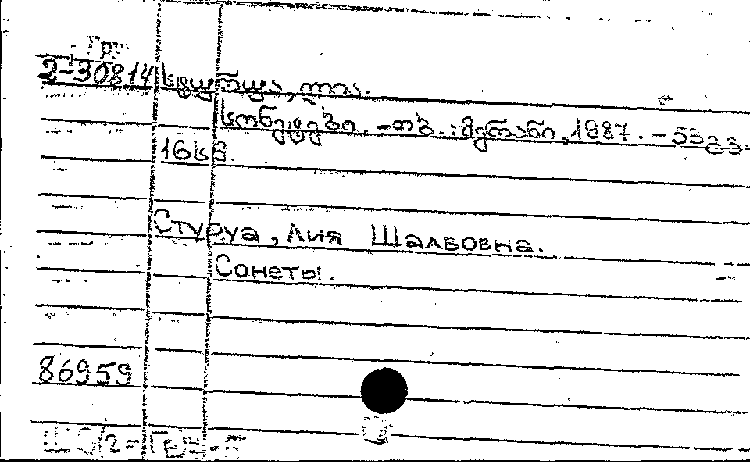 Гру
2-30814 სტურუა, ლია.
სონეტები. -თბ.: მერანი, 1987. - 53გვ.
16სმ.
Стуруа, Лия Шалвовна.
Сонеты.
86959